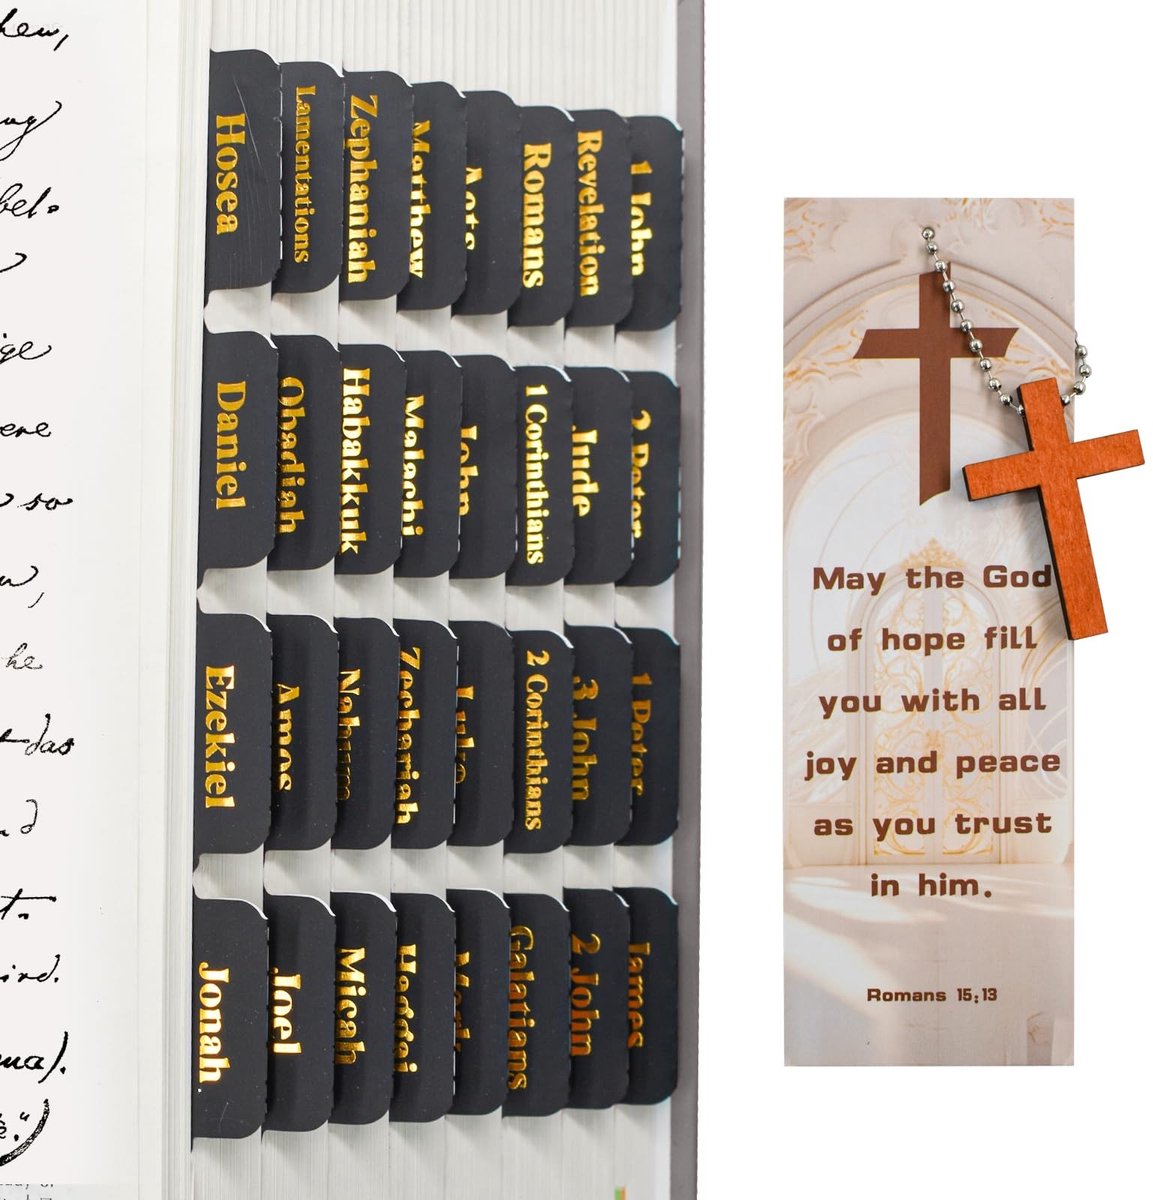 hew,
bel.
ere
so
he
das
t.
ird.
Hosea
Lamentations
Zephaniah
Matthew
Acts
Romans
Revelation
1 John
Daniel
Obadiah
Habakkuk
Malachi
John
1 Corinthians
Jude
2 Peter
Ezekiel
Amos
Nahum
Zechariah
Luke
2 Corinthians
3 John
1 Peter
Jonah
Joel
Micah
Haggai
Mark
Galatians
2 John
James
May the God
of hope fill
you with all
joy and peace
as you trust
in him.
Romans 15:13